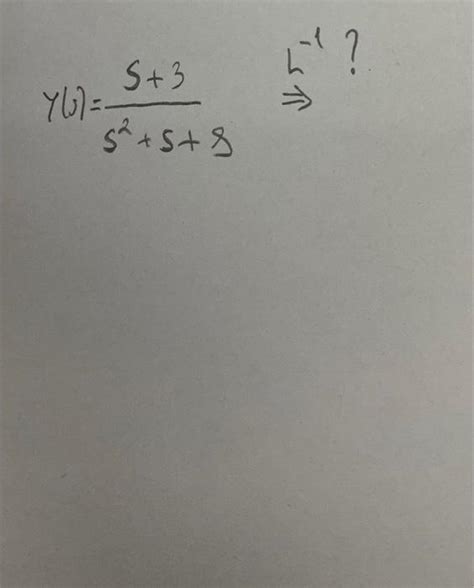 Y(s)= S+3 / S²+S+8 ⇒ L⁻¹ ?